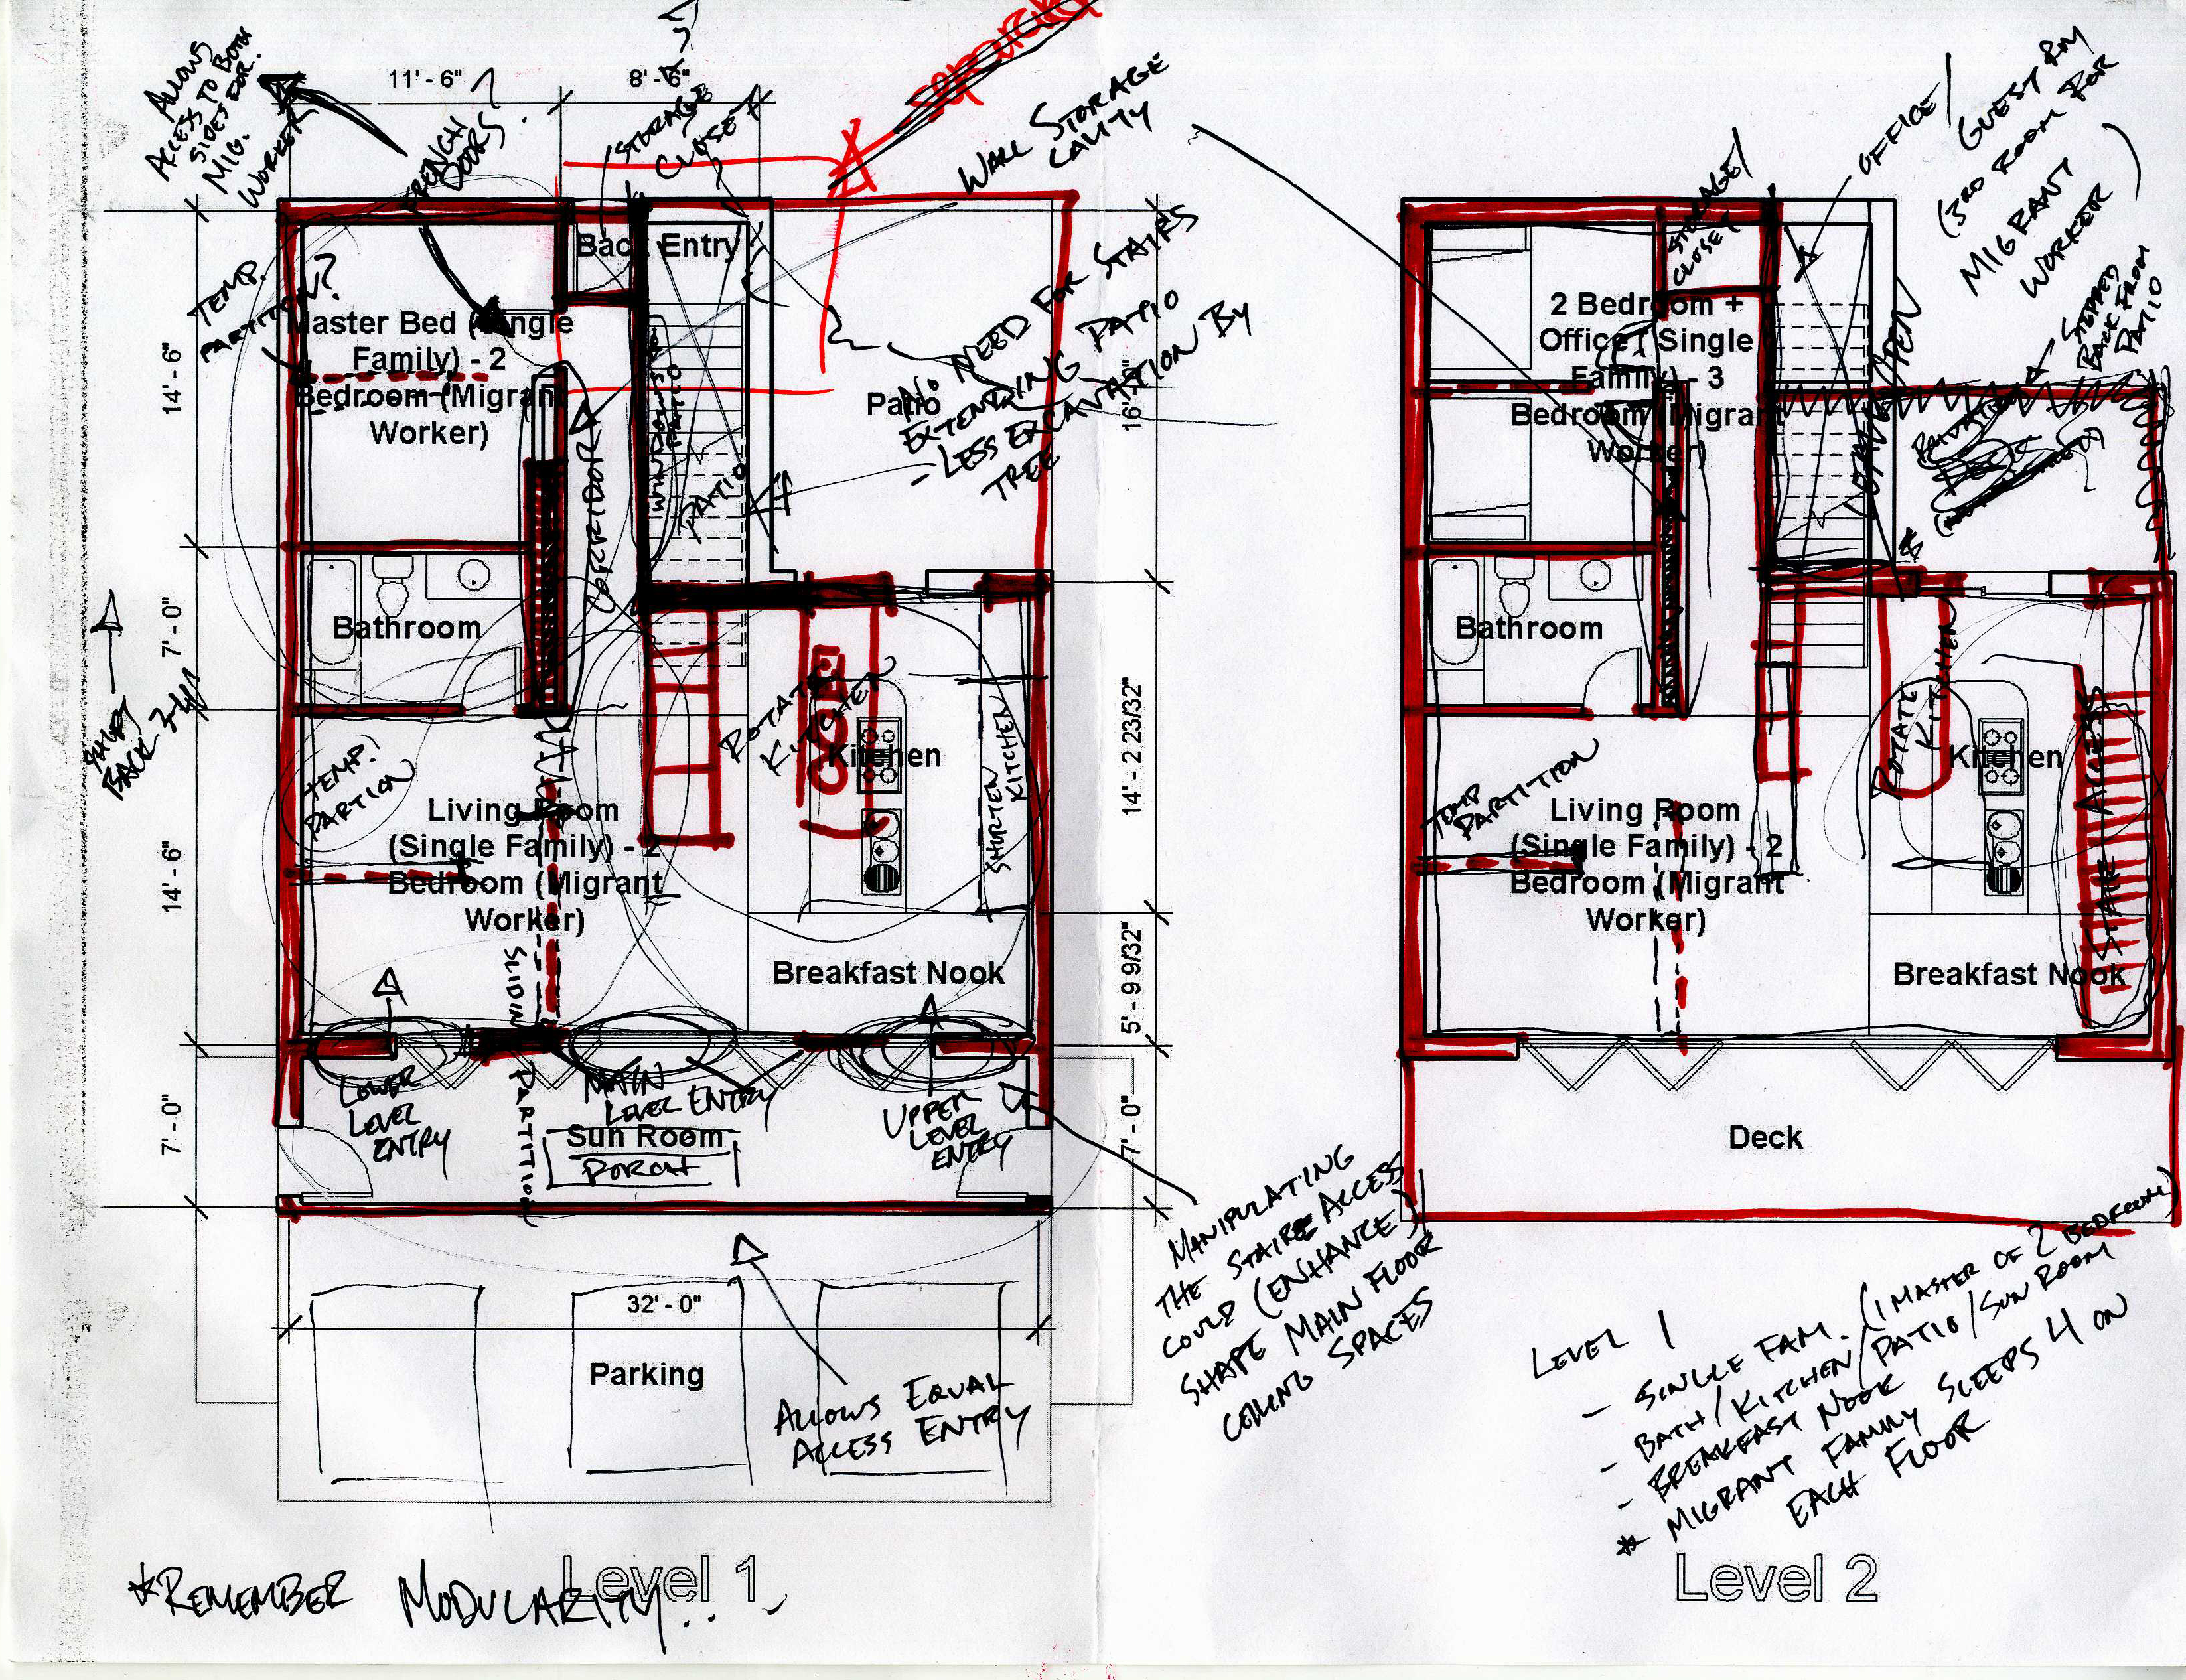 ALLOWS
ACCESS TO BOTH
SIDES FOR
MIG.
WORKER
11' - 6"
8' - 6"
FRENCH
DOORS?
STORAGE
CLOSET
WALL STORAGE
CAVITY
Back Entry
TEMP.
PARTITION?
Master Bed (Single
Family) - 2
Bedroom (Migrant
Worker)
14' - 6"
Patio
NO NEED FOR STAIRS
EXTENDING PATIO
- LESS EXCAVATION BY
TREE
PATIO
16'
Bathroom
7' - 0"
SHIFT
BACK
ROTATE
KITCHEN
Kitchen
SHORTEN
KITCHEN
14' - 2 23/32"
TEMP.
PARTION
Living Room
(Single Family) - 2
Bedroom (Migrant
Worker)
14' - 6"
SLIDING
PARTITION
Breakfast Nook
5' - 9 9/32"
LOWER
LEVEL
ENTRY
MAIN
LEVEL ENTRY
UPPER
LEVEL
ENTRY
Sun Room
PORCH
7' - 0"
7' - 0"
MANIPULATING
THE STAIR ACCESS
COULD (ENHANCE)/
SHAPE MAIN FLOOR
CEILING SPACES
32' - 0"
Parking
ALLOWS EQUAL
ACCESS ENTRY
Level 1
*REMEMBER MODULARITY..
OFFICE/
GUEST RM
(3RD ROOM FOR
MIGRANT
WORKER)
STORAGE/
CLOSET
STEPPED
BACK FROM
PATIO
2 Bedroom +
Office (Single
Family) - 3
Bedroom (Migrant
Worker)
LEAVE OPEN
Bathroom
ROTATE
KITCHEN
Kitchen
STAIR ACCESS
TEMP
PARTITION
Living Room
(Single Family) - 2
Bedroom (Migrant
Worker)
Breakfast Nook
Deck
LEVEL 1
- SINGLE FAM. (1 MASTER OF 2 BEDROOM)
- BATH/KITCHEN/PATIO/SUN ROOM
- BREAKFAST NOOK
* MIGRANT FAMILY SLEEPS 4 ON
EACH FLOOR
Level 2